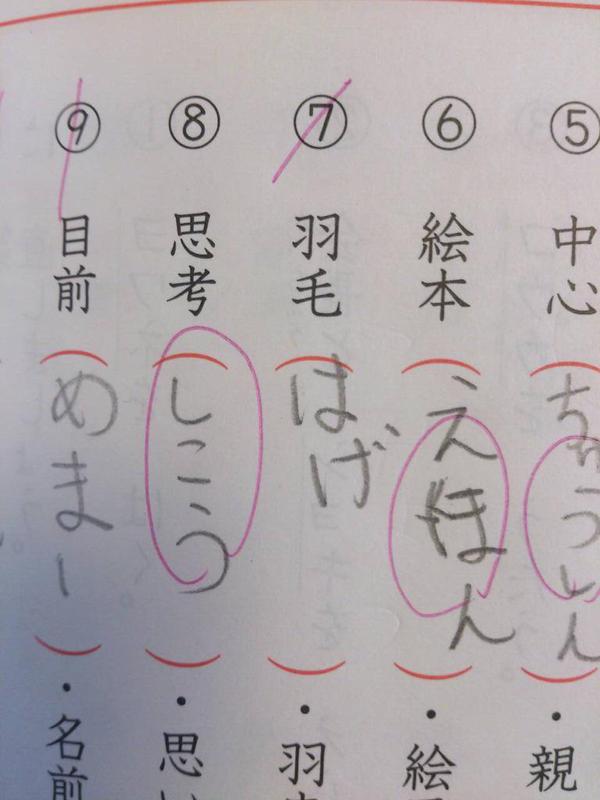 ⑤ 中心 (ちゅうしん)・親
⑥ 絵本 (えほん)・絵
⑦ 羽毛 (はげ)・羽
⑧ 思考 (しこう)・思い
⑨ 目前 (めまー)・名前